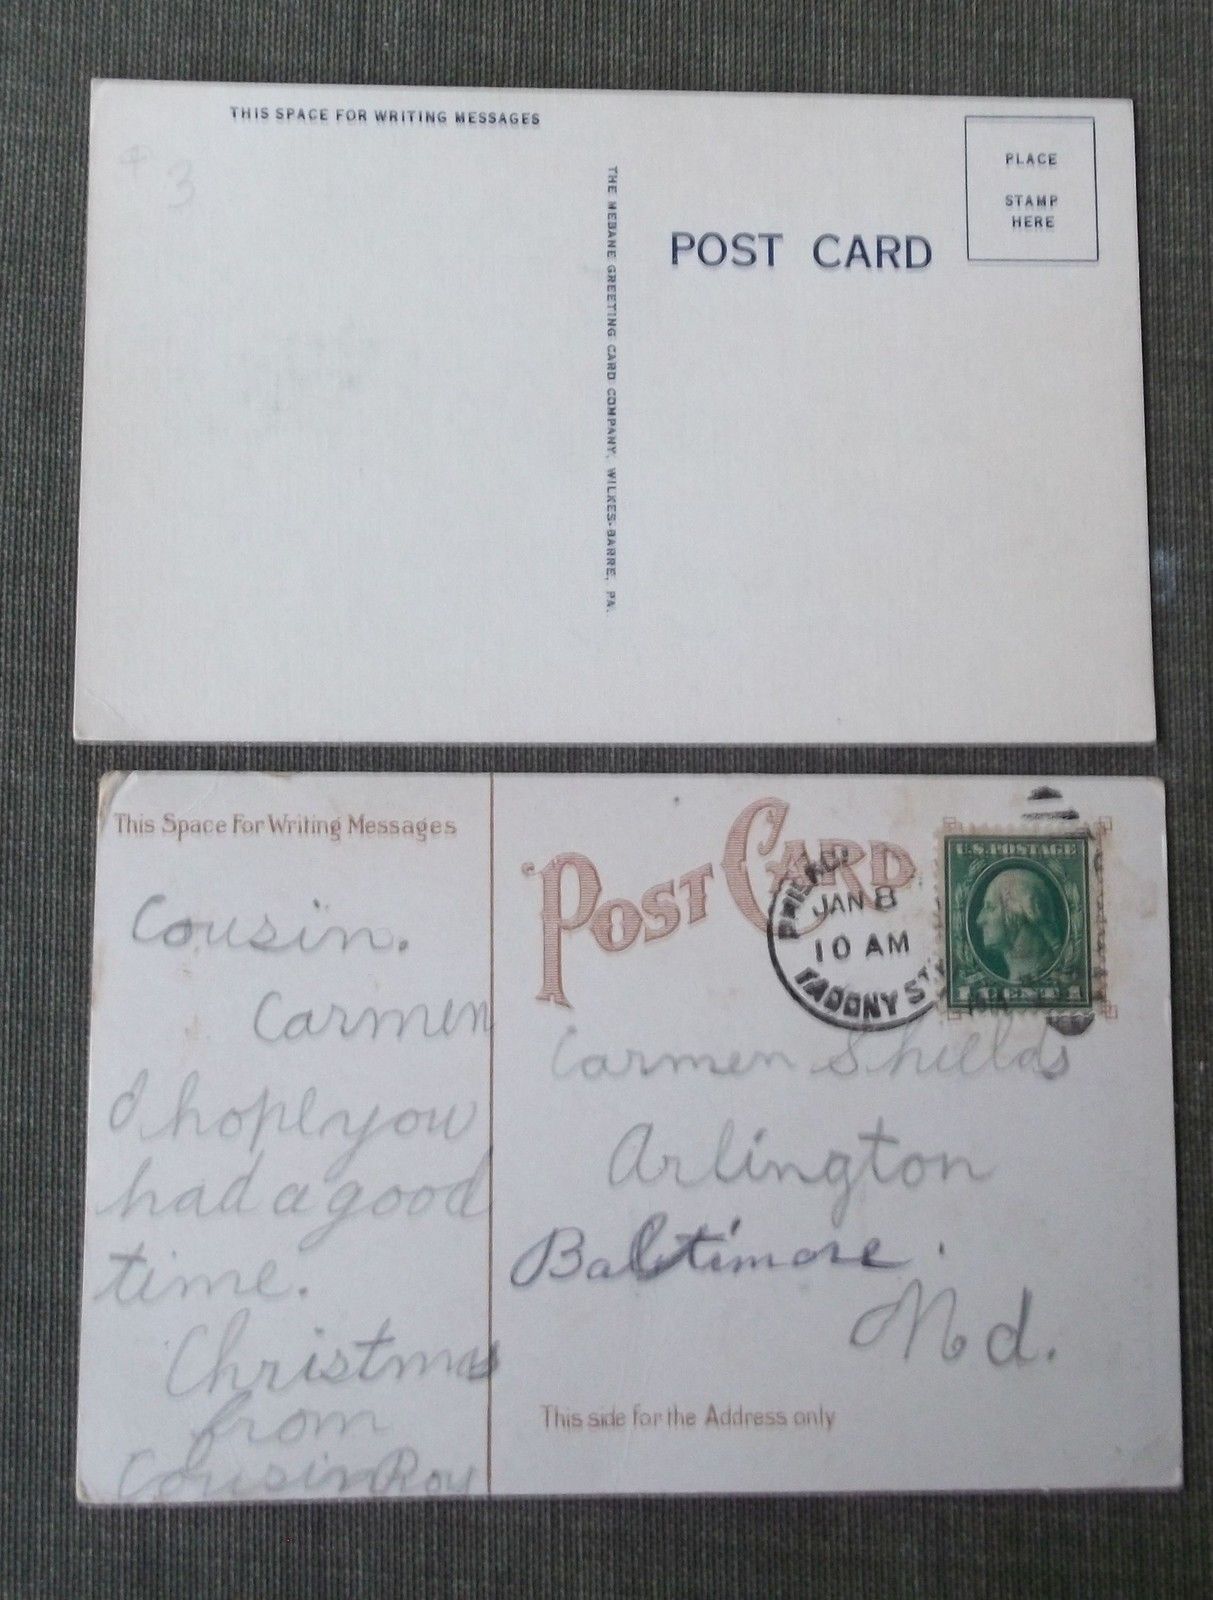 THIS SPACE FOR WRITING MESSAGES
3
THE MEBANE GREETING CARD COMPANY, WILKES-BARRE, PA.
POST CARD
PLACE
STAMP
HERE
This Space For Writing Messages
Cousin.
Carmen
I hope you
had a good
time.
Christmas
from
Cousin Roy
POST CARD
PHILAD.
JAN 8
10 AM
TACONY ST
U.S. POSTAGE
1 CENT 1
Carmen Shields
Arlington
Baltimore.
Md.
This side for the Address only